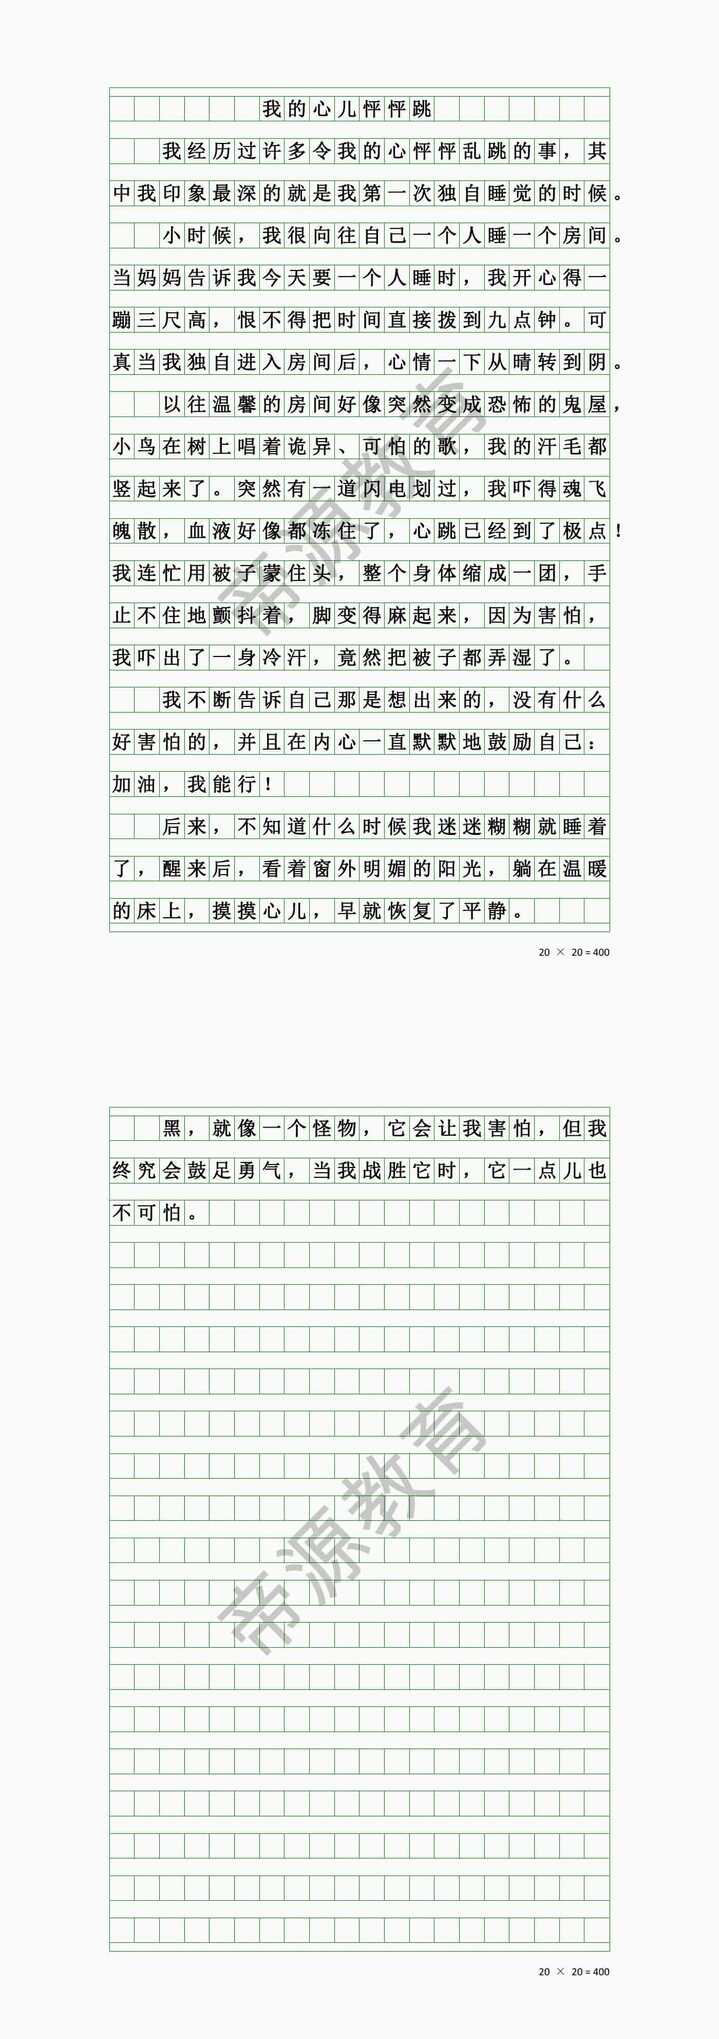 我的心儿怦怦跳
我经历过许多令我的心怦怦乱跳的事，其
中我印象最深的就是我第一次独自睡觉的时候。
小时候，我很向往自己一个人睡一个房间。
当妈妈告诉我今天要一个人睡时，我开心得一
蹦三尺高，恨不得把时间直接拨到九点钟。可
真当我独自进入房间后，心情一下从晴转到阴。
以往温馨的房间好像突然变成恐怖的鬼屋，
小鸟在树上唱着诡异、可怕的歌，我的汗毛都
竖起来了。突然有一道闪电划过，我吓得魂飞
魄散，血液好像都冻住了，心跳已经到了极点！
我连忙用被子蒙住头，整个身体缩成一团，手
止不住地颤抖着，脚变得麻起来，因为害怕，
我吓出了一身冷汗，竟然把被子都弄湿了。
我不断告诉自己那是想出来的，没有什么
好害怕的，并且在内心一直默默地鼓励自己：
加油，我能行！
后来，不知道什么时候我迷迷糊糊就睡着
了，醒来后，看着窗外明媚的阳光，躺在温暖
的床上，摸摸心儿，早就恢复了平静。
帝源教育
20 × 20 = 400
黑，就像一个怪物，它会让我害怕，但我
终究会鼓足勇气，当我战胜它时，它一点儿也
不可怕。
帝源教育
20 × 20 = 400